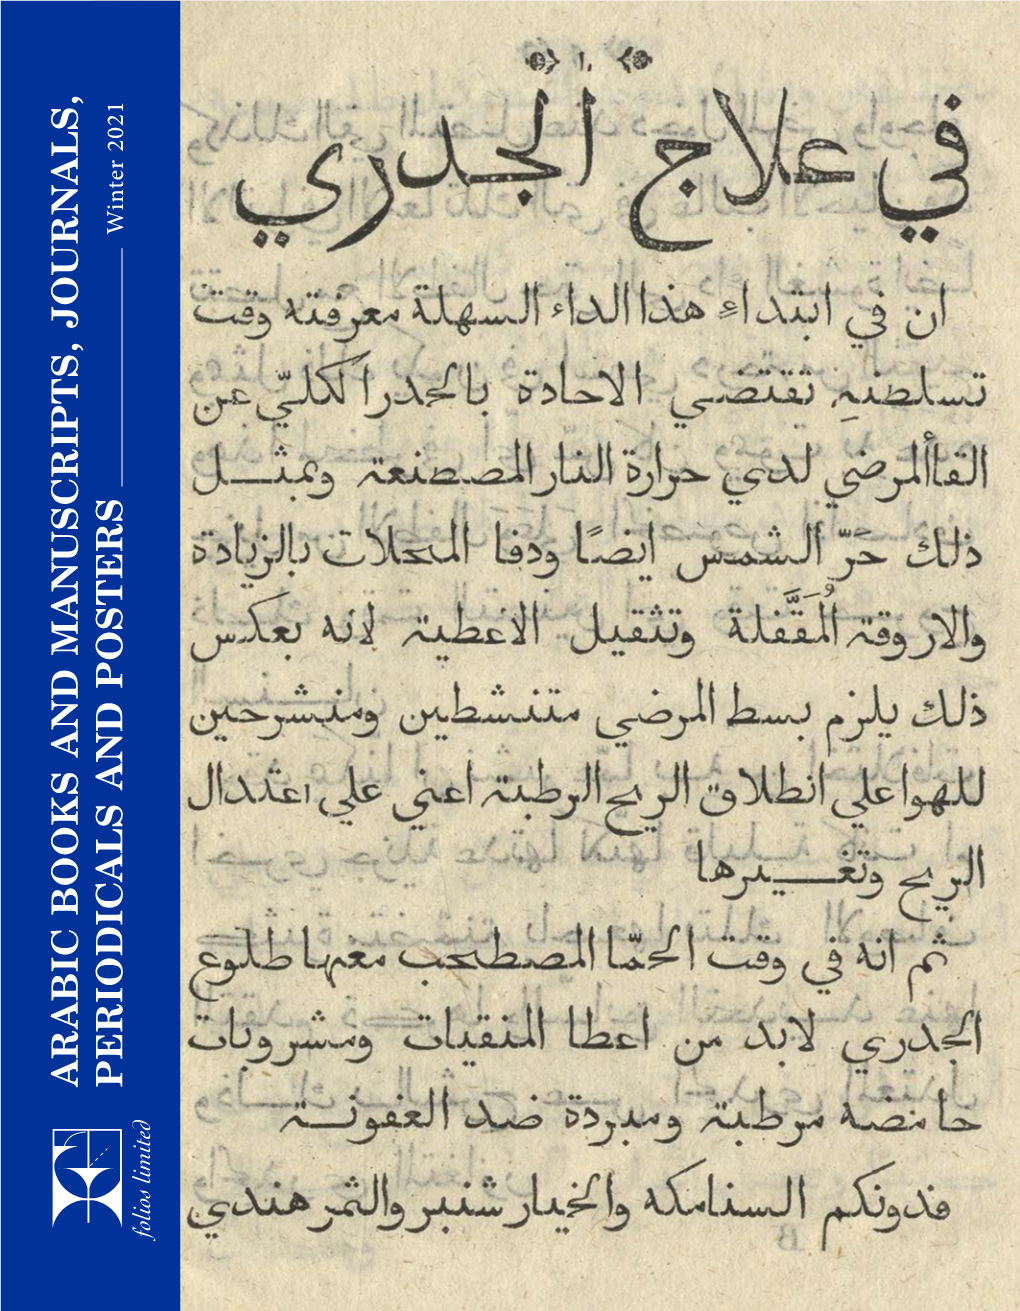 ARABIC BOOKS AND MANUSCRIPTS, JOURNALS,
PERIODICALS AND POSTERS
Winter 2021
folios limited
١
في علاج الجدري
ان في ابتداءِ هذا الداء السهلة معرفته وقت
تسلطنهِ تقتضي الاحادة بالحدر الكليّ عن
القا المرضي لدي حرارة النار المصطنعة وبمثل
ذلك حَرّ الشمس ايضًا ودفا المحلات بالزيادة
والاروقة المُقَفَّلة وتثقيل الاعطية لانه بعكس
ذلك يلزم بسط المرضي متنشطين ومنشرحين
للهوا علي انطلاق الريح الرطبة اعني علي اعتدال
الريح وتغييرها
ثم انه في وقت الحمّا المصطحب معها طلوع
الجدري لابد من اعطا المنقيات ومشروبات
حامضه مرطبة ومبردة ضد العفونة
فدونكم السنامكه والخيار شنبر والثمر هندي
B